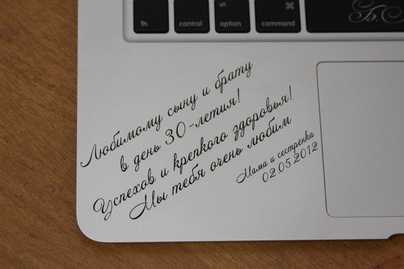 fn
control
option
command
⌘
Б.С
Любимому сыну и брату
в день 30-летия!
Успехов и крепкого здоровья!
Мы тебя очень любим
Мама и сестренка
02.05.2012